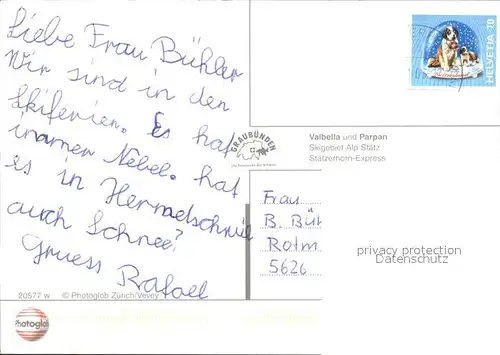 Liebe Frau Bühler
Wir sind in den
Skiferien. Es hat
immer Nebel. hat
es in Hermetschwil
auch Schnee?
Gruess Rafael
HELVETIA 70
GRAUBÜNDEN
Valbella und Parpan
Skigebiet Alp Stätz
Stätzerhorn-Express
Frau
B. Büh
Rotm
5626
privacy protection
Datenschutz
20577 w © Photoglob Zürich/Vevey
Photoglob